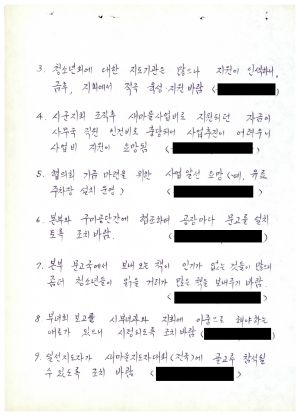 3. 청소년회에 대한 지도기관은 많으나 지원이 인색하니,
금후, 지회에서 적극 육성·지원 바람 (
4. 시군지회 조직후 새마을사업비로 지원되던 자금이
사무국 직원 인건비로 충당되어 사업추진이 어려우니
사업비 지원이 요망됨 (
5. 협의회 기금 마련을 위한 사업 알선 요망 (예, 유료
주차장 설치 운영) (
6. 본부와 구미공단간에 협조하여 공장마다 문고를 설치
토록 조치 바람. (
7. 본부 문고국에서 보내오는 책이 인기가 없는 것들이 많으니
좀더 청소년들이 읽을 거리가 많은 책을 보내주기 바람
(
8 부녀회 보고를 시부녀과와 지회에 이중으로 해야하는
애로가 있으니 시정되도록 조치 바람 (
9. 일선지도자가 새마을지도자대회(전국)에 골고루 참석될
수 있도록 조치 바람 (